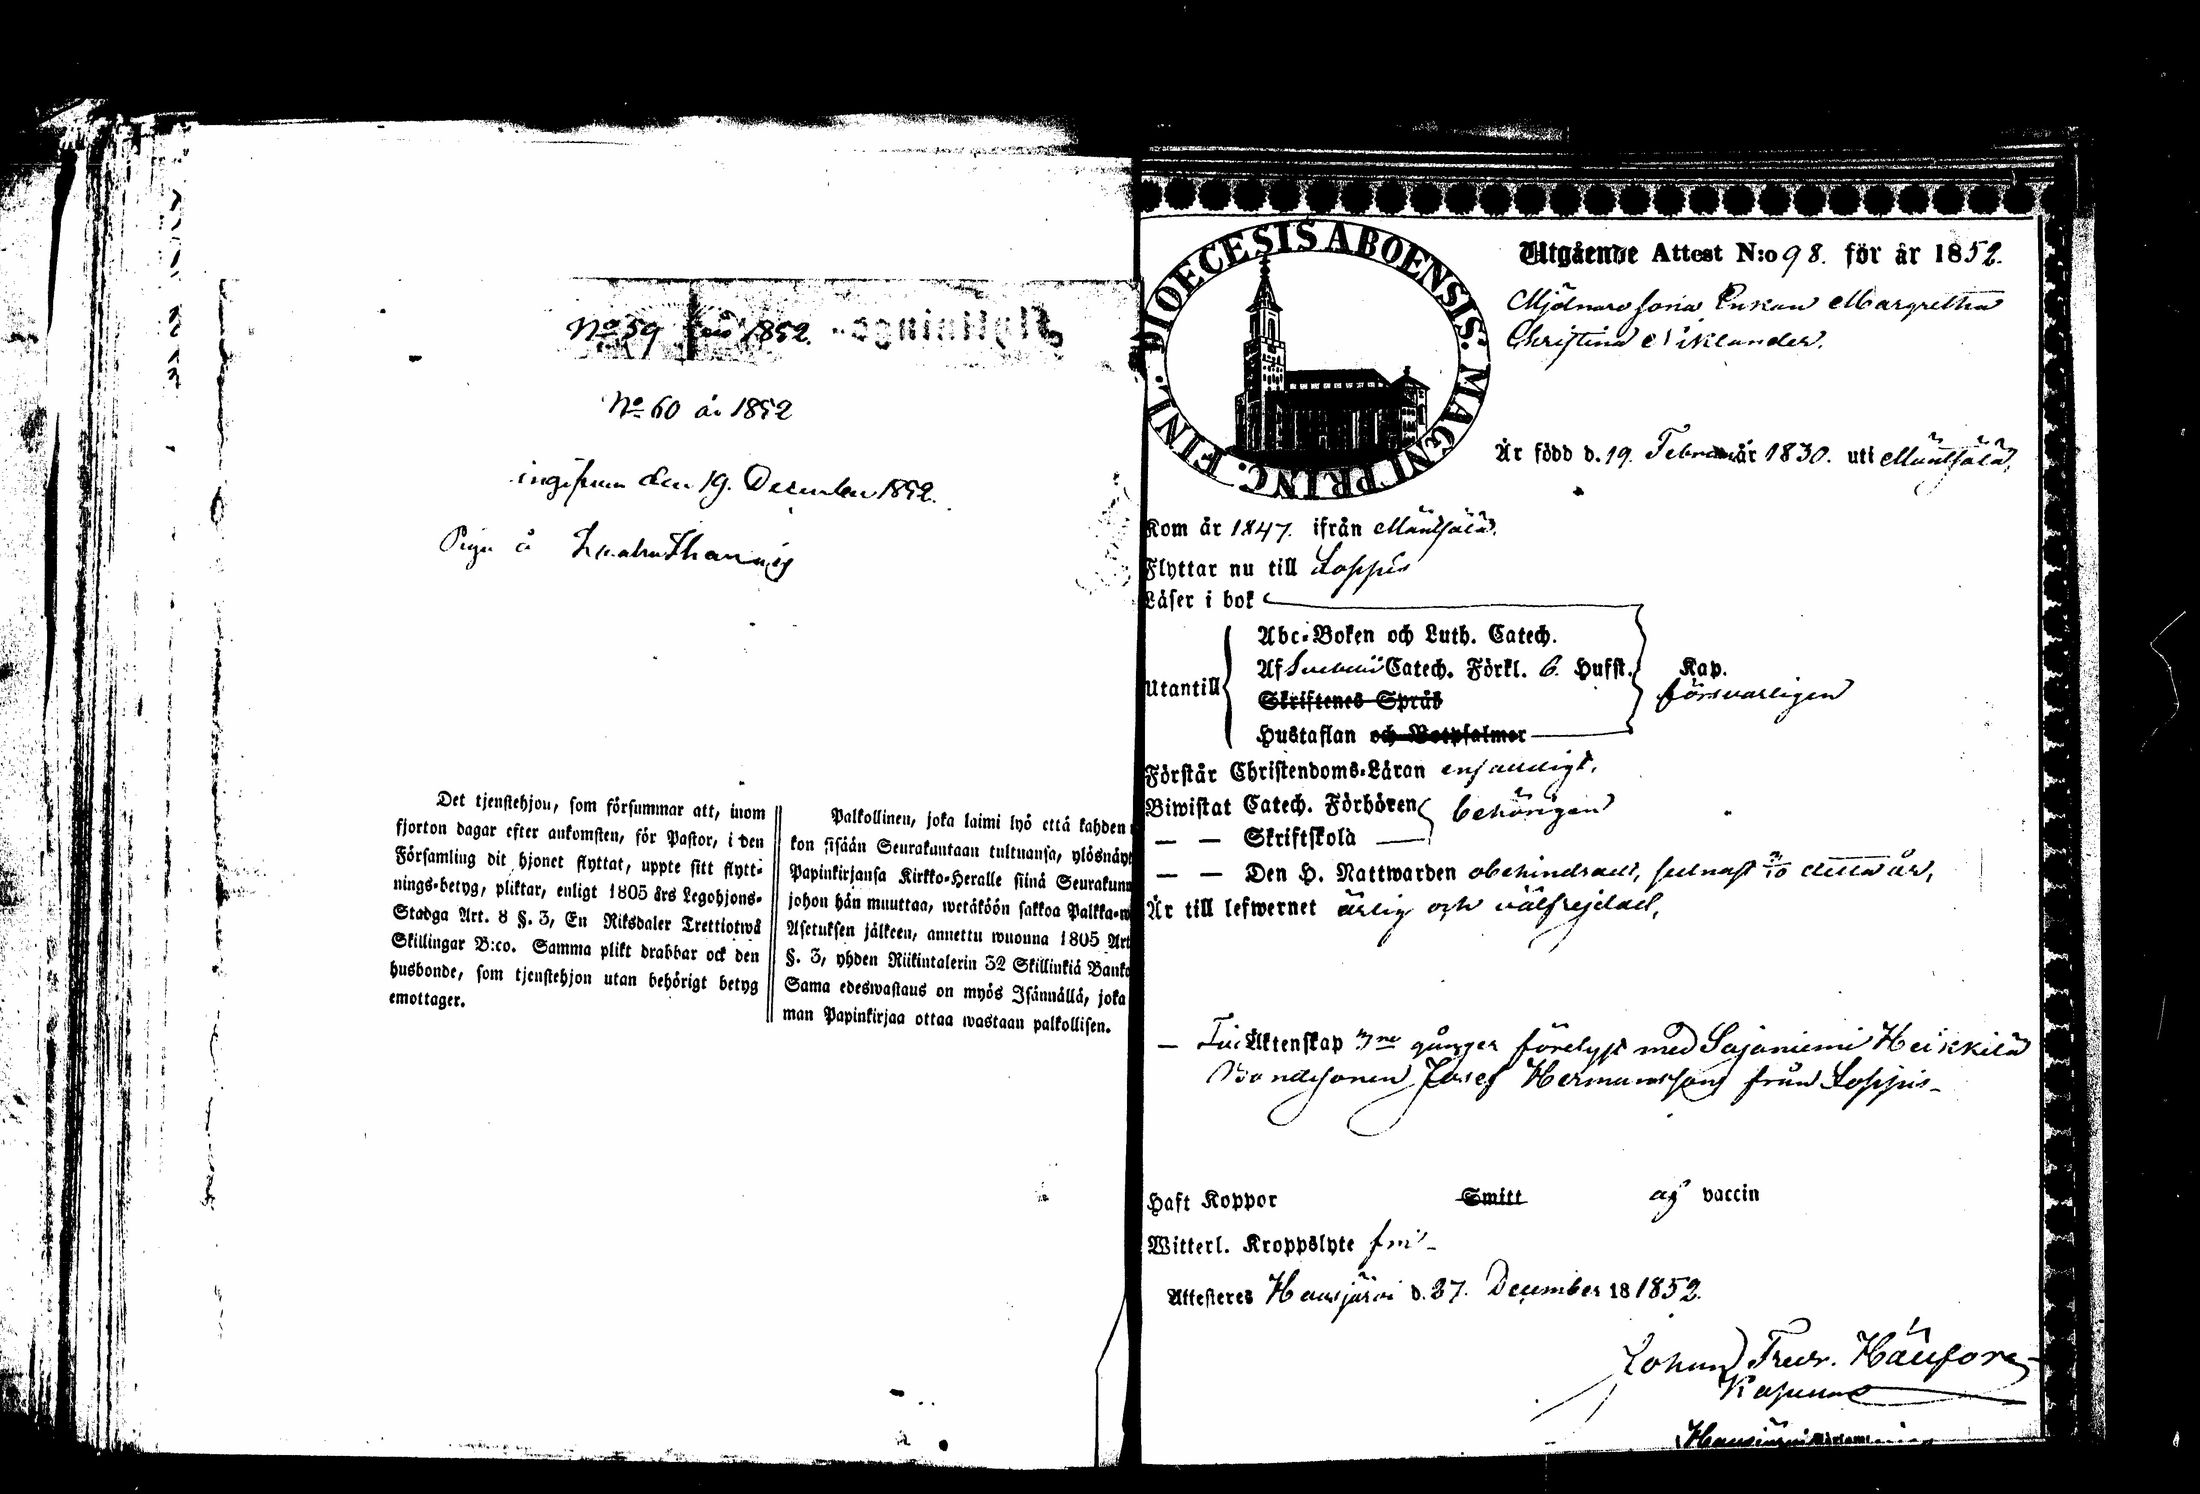 No 59 1852.
No 60 år 1852
den 19. December 1852.
Piga å
Det tjenstehjon, som försummar att, inom
fjorton dagar efter ankomsten, för Pastor, i den
Församling dit hjonet flyttat, uppte sitt flytt-
nings-betyg, pliktar, enligt 1805 års Legohjons-
Stadga Art. 8 §. 3, En Riksdaler Trettiotwå
Skillingar B:co. Samma plikt drabbar ock den
husbonde, som tjenstehjon utan behörigt betyg
emottager.
Palkollinen, joka laimi lyö että kahden
kon sisään Seurakuntaan tultuansa, ylösnäyt
Papinkirjansa Kirkko-Heralle siinä Seurakunn
johon hän muuttaa, wetäköön sakkoa Palkka-w
Asetuksen jälkeen, annettu wuonna 1805 Art
§. 3, yhden Riikintalerin 32 Skillinkiä Banko
Sama edeswastaus on myös Isännällä, joka
man Papinkirjaa ottaa wastaan palkollisen.
DIOECESIS ABOENSIS. MAGNI PRINC. FINL.
Utgående Attest N:o 98. för år 1852.
Enkan Margretha
Christina Wiklander.
Är född d. 19. Februar 1830. uti Mäntsälä.
Kom år 1847. ifrån Mäntsälä.
Flyttar nu till Loppis
Läser i bok
Utantill
Abc-Boken och Luth. Catech.
Af Svebelii Catech. Förkl. 6. Hufst. Kap.
försvarligen
Skriftenes Språk
Hustaflan och Botpsalmer
Förstår Christendoms-Läran enfaldigt.
Biwistat Catech. Förhören behörigen
— — Skriftskola
— — Den H. Nattwarden obehindradt, sednast detta år,
Är till lefwernet ärlig och välfrejdad,
— Till Äktenskap 3ne gånger förelyst med Sajaniemi Heikkilä
Bondesonen Josef Hermansson från Loppis –
Haft Koppor Smitt af vaccin
Witterl. Kroppslyte fri –
Attesteres Hausjärvi d. 27. December 18 1852.
Johan Fredr. Hänfors